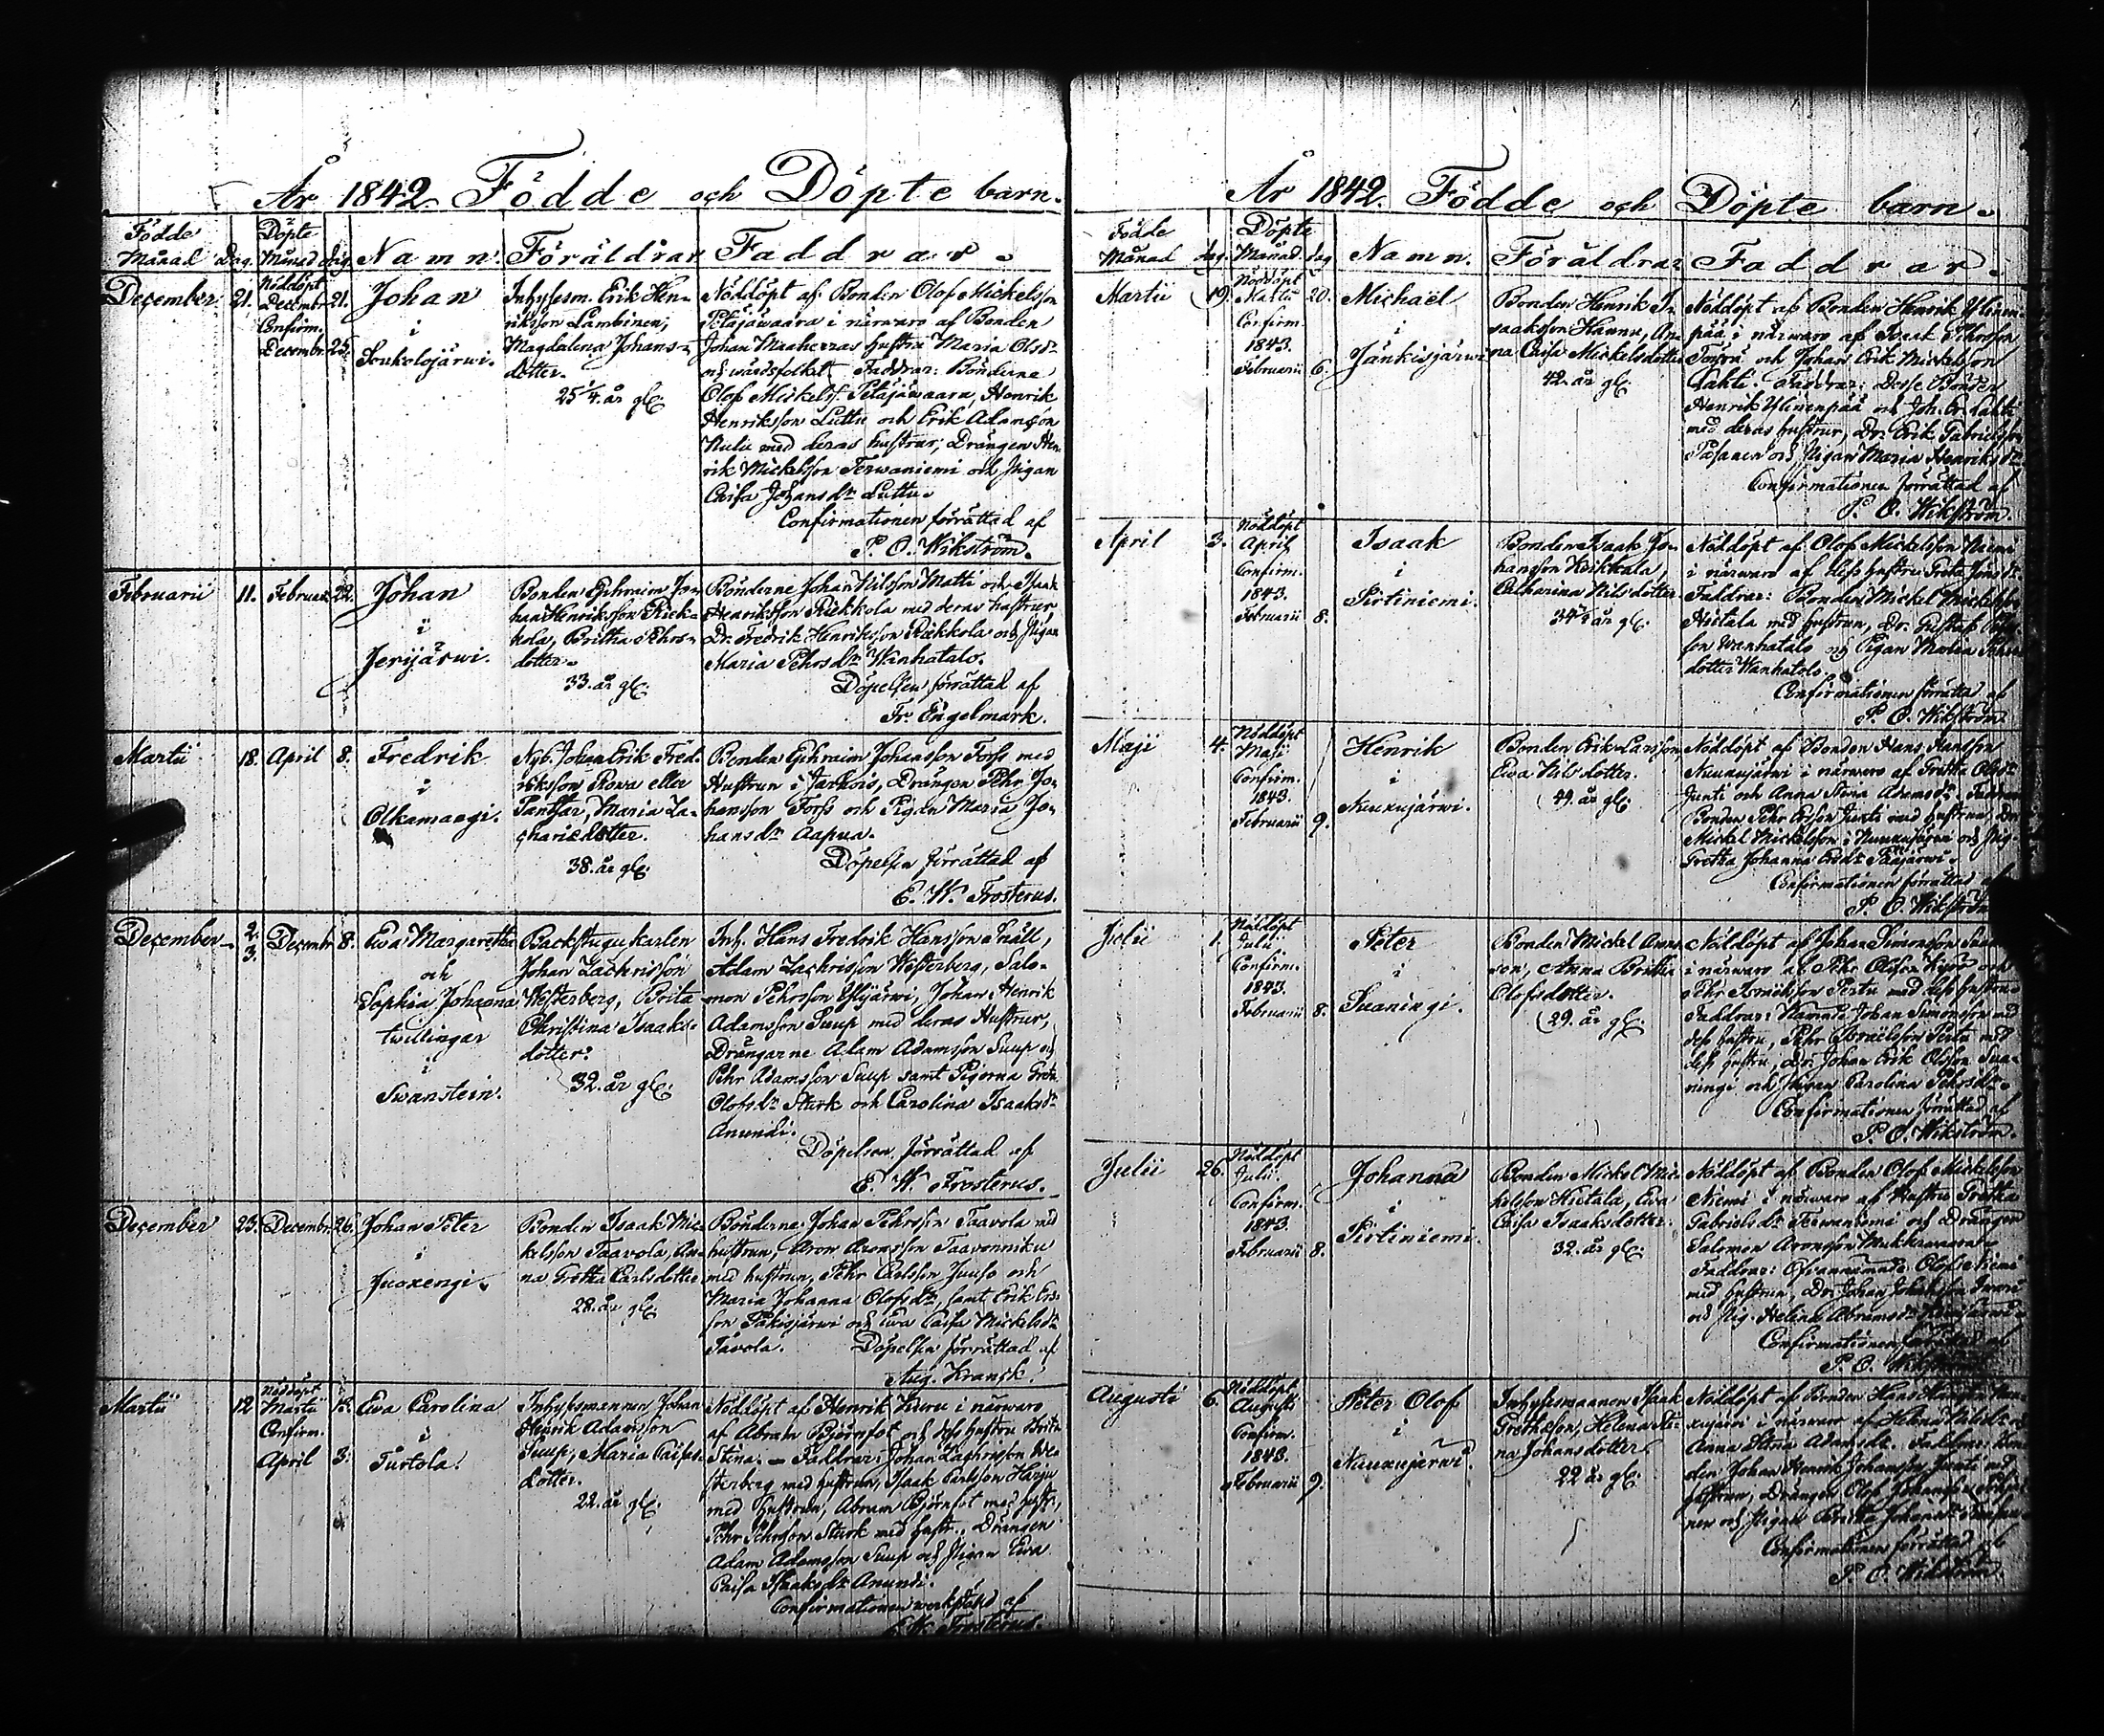 År 1842 Födde och Döpte barn.
Födde Månad Dag. Döpte Månad dag Namn. Föräldrar Faddrar.
December 21. Nöddöpt Decembr 21. Confirm. Decembr 25.
Johan
i
Soukolojärwi.
Inhysesm. Erik Hen-
riksson Lambinen,
Magdalena Johans-
dotter.
25 1/4. år gl:
Nöddöpt af Bonden Olof Mickelsson
Petäjäwaara i närwaro af Bonden
Johan Maaherras hustru Maria Olsdr
och wårdsfolket. Faddrar: Bönderne
Olof Mickelss. Petäjäwaara, Henrik
Henriksson Luttu och Erik Adamsson
med deras hustrur, Drängen Hen-
rik Mickelsson Terwaniemi och Pigan
Caisa Johansdr Luttu.
Confirmationen förrättad af
P. O. Wikström.
Februarii 11. Februar. 22.
Johan
i
Jerijärwi.
Bonden Ephraim Jo-
han Henriksson Kiek-
kola, Britha Pehrs-
dotter.
33. år gl:
Bönderne Johan Nilsson Matti och Isaak
Henriksson Kiekkola med deras hustrur
Dr. Fredrik Henriksson Kiekkola och Pigan
Maria Pehrsdr Wanhatalo.
Döpelsen förrättad af
Fr. Engelmark.
Martii 18. April 8.
Fredrik
i
Olkamangi.
Nyb. Johan Erik Fred-
riksson Rowa eller
Pantsar, Maria Za-
chariedotter.
38. år gl:
Bonden Ephraim Johansson Forss med
Hustrun i Jarhois, Drängen Pehr Jo-
hansson Forss och Pigan Maria Jo-
hansdr Aapua.
Döpelsen förrättad af
E. W. Frosterus.
December 2. 3. Decembr 8.
Ewa Margaretha
och
Sophia Johanna
twillingar
i
Swanstein.
Backstugukarlen
Johan Zachrisson
Westerberg, Brita
Christina Isaaks-
dotter.
32. år gl:
Inh. Hans Fredrik Hansson Snäll,
Adam Zachrisson Westerberg, Salo-
mon Pehrsson Ylijärwi, Johan Henrik
Adamsson Suup med deras Hustrur,
Drängarne Adam Adamsson Suup och
Pehr Adamsson Suup samt Pigorna Greta
Olofsdr Stark och Carolina Isaaksdr
Anundi.
Döpelsen förrättad af
E. W. Frosterus.
December 23. Decembr. 26.
Johan Peter
i
Juoxengi.
Bonden Isaak Mic-
kelsson Taavola, An-
na Gretha Carlsdotter
28. år gl:
Bönderne Johan Pehrsson Taavola med
hustrun, Aron Aronsson Taavonniku
med hustrun, Pehr Carlsson Juuso och
Maria Johanna Olofsdr, samt Erik Ers-
son Päkisjärwi och Ewa Caisa Mickelsdr
Tavola. Döpelsen förrättad af
Aug. Kransk.
Martii 12 Nöddöpt Martii 12. Confirm. April 3.
Ewa Carolina
i
Turtola.
Inhysesmannen Johan
Henrik Adamsson
Suup, Maria Caisas-
dotter.
22. år gl:
Nöddöpt af Henrik Kuru i närwaro
af Abram Björnfot och dess hustru Brita
Stina. — Faddrar: Johan Zachrisson We-
sterberg med hustrun, Isaak Carlsson Harju
med Hustrun, Abram Björnfot med hustr.,
Pehr Pehrsson Stark med hustr., Drängen
Adam Adamsson Suup och Pigan Ewa
Caisa Isaaksdr Anundi.
Confirmationen werkställd af
E. W. Frosterus.
År 1842 Födde och Döpte barn.
Födde Månad dag. Döpte Månad dag Namn. Föräldrar Faddrar.
Martii 19. Nöddöpt Martii 20. Confirm. 1843. Februarii 6.
Michaël
i
Jänkisjärwi
Bonden Henrik I-
saaksson Hannu, An-
na Caisa Mickelsdotter
42. år gl:
Nöddöpt af Bonden Henrik Ylinen-
pää i närwaro af Isaak Pehrsson
och Johan Erik Mickelsson
Lahti. Faddrar: Desse Bönder
Henrik Ylinenpää och Joh. Er. Lahti
med deras hustrur, Dr. Erik Gabrielsson
Pasanen och Pigan Maria Henriksdr
Confirmationen förrättad af
P. O. Wikström.
April 3. Nöddöpt April Confirm. 1843. Februarii 8.
Isaak
i
Pirtiniemi.
Bonden Isaak Jo-
hansson Keikkala,
Catharina Nilsdotter
34 1/2 år gl:
Nöddöpt af Olof Mickelsson Niemi
i närwaro af dess hustru Greta Jönsdr
Faddrar: Bonden Mickel Mickelsson
Hietala med hustrun, Dr. Gustaf Pehrs-
son Wanhatalo och Pigan Maria Pehrs-
dotter Wanhatalo.
Confirmationen förrättad af
P. O. Wikström
Maji 4. Nöddöpt Maji Confirm. 1843. Februarii 9.
Henrik
i
Nuuxujärwi.
Bonden Erik Larsson,
Ewa Nilsdotter.
44. år gl:
Nöddöpt af Bonden Hans Hansson
Nuuxujärwi i närwaro af Gretha Olsdr
Junti och Anna Stina Adamsdr. Faddrar
Bonden Pehr Ersson Junti med hustrun, Dr.
Mickel Mickelsson i Nuuxujärwi och Pig.
Gretha Johanna Ersdr Pääjärwi.
Confirmationen förrättad af
P. O. Wikström
Julii 1. Nöddöpt Julii Confirm. 1843. Februarii 8.
Peter
i
Suaningi.
Bonden Mickel Anders-
son, Anna Britha
Olofsdotter.
29. år gl:
Nöddöpt af Johan Simonsson
i närwaro af Pehr Olsson Kyrö och
Pehr Israelsson Pertu med dess hustru
Faddrar: Nämnde Johan Simonsson med
dess hustru, Pehr Israelsson Pertu med
dess hustru, Dr. Johan Erik Olsson Sua-
ningi och Pigan Carolina Pehrsdr.
Confirmationen förrättad af
P. O. Wikström.
Julii 26. Nöddöpt Julii. Confirm. 1843. Februarii 8.
Johanna
i
Pirtiniemi.
Bonden Mickel Mic-
kelsson Hietala, Ewa
Caisa Isaaksdotter.
32. år gl:
Nöddöpt af Bonden Olof Mickelsson
Niemi i närwaro af Hustru Gretha
Gabrielsdr Terwaniemi och Drängen
Salomon Aronsson Mukkawaara.
Faddrar: Ofvannämnde Olof Niemi
med hustrun, Dr. Johan
och Pig. Helena Abramsdr
Confirmationen förrättad af
P. O. Wikström
Augusti 6. Nöddöpt Augusti Confirm. 1843. Februarii 9.
Peter Olof
i
Nuuxujärwi.
Inhysesmannen Isaak
Grethsson, Helena Sti-
na Johansdotter.
22 år gl:
Nöddöpt af Bonden Hans Hansson Nuu-
xujärwi i närwaro af Helena Nilsdr och
Anna Stina Adamsdr. Faddrar: Bon-
den Johan Henrik Johansson Junti med
hustrun, Drängen Olof Johansson
och Pigan Britha Johansdr
Confirmationen förrättad af
P. O. Wikström.